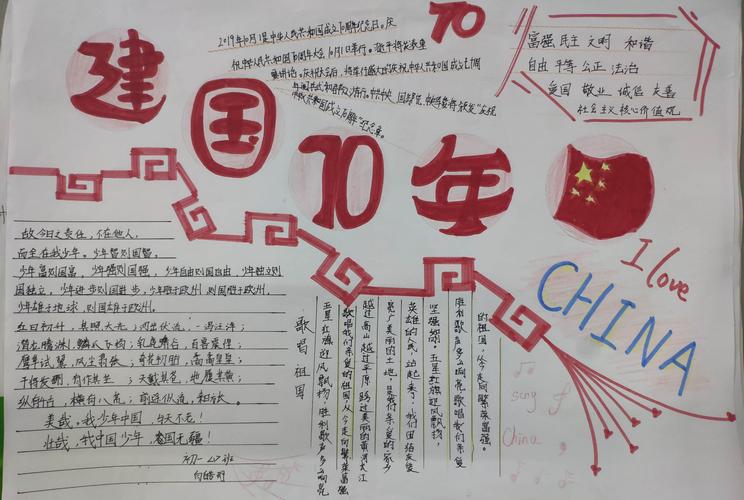 建国70年
70
2019年10月1是中华人民共和国成立70周年纪念日。庆
祝中华人民共和国70周年大会10月1日举行。
富强 民主 文明 和谐
自由 平等 公正 法治
爱国 敬业 诚信 友善
社会主义核心价值观
I love
CHINA
故今日之责任,不在他人,
而全在我少年。少年智则国智,
少年富则国富,少年强则国强,少年自由则国自由,少年独立则
国独立,少年进步则国进步,少年胜于欧洲,则国胜于欧洲,
少年雄于地球,则国雄于地球。
红日初升,其道大光;河出伏流,一泻汪洋;
潜龙腾渊,鳞爪飞扬;乳虎啸谷,百兽震惶;
鹰隼试翼,风尘翕张;奇花初胎,矞矞皇皇;
干将发硎,有作其芒;天戴其苍,地履其黄;
纵有千古,横有八荒;前途似海,来日方长。
美哉,我少年中国,与天不老!
壮哉,我中国少年,与国无疆!
初一(7)班
歌唱祖国
五星红旗迎风飘扬,胜利歌声多么响亮
歌唱我们亲爱的祖国,从今走向繁荣富强
越过高山,越过平原,跨过奔腾的黄河长江
宽广美丽的土地,是我们亲爱的家乡
英雄的人民站起来了,我们团结友爱
坚强如钢。五星红旗迎风飘扬,
胜利歌声多么响亮,歌唱我们亲爱
的祖国,从今走向繁荣富强。
song
China